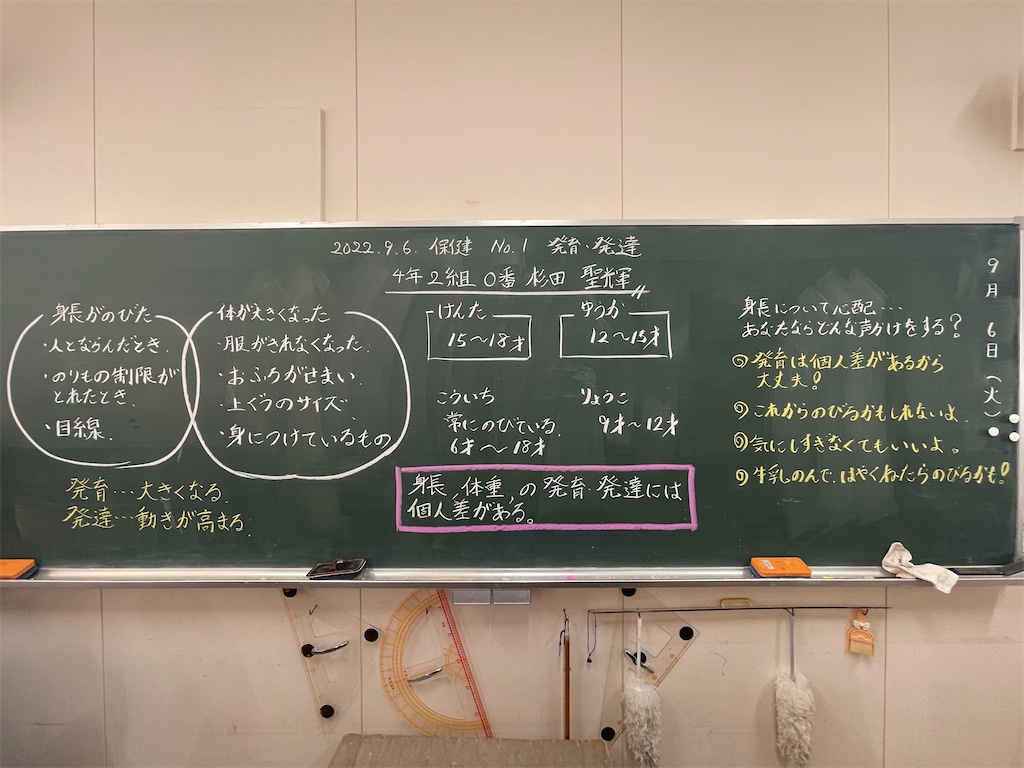 2022.9.6. 保健 No.1 発育・発達
4年2組 0番 杉田 聖輝
身長がのびた
・人とならんだとき.
・のりもの制限が
とれたとき.
・目線.
体が大きくなった
・服がきれなくなった.
・おふろがせまい.
・上ぐつのサイズ.
・身につけているもの
発育…大きくなる.
発達…動きが高まる.
けんた
15〜18才
ゆうか
12〜15才
こういち
常にのびている.
6才〜18才
りょうこ
9才〜12才
身長,体重,の発育・発達には
個人差がある。
身長について心配…
あなたならどんな声かけをする?
発育は個人差があるから
大丈夫!
これからのびるかもしれないよ.
気にしすぎなくてもいいよ。
牛乳のんで.はやくねたらのびるかも!
9月6日(火)